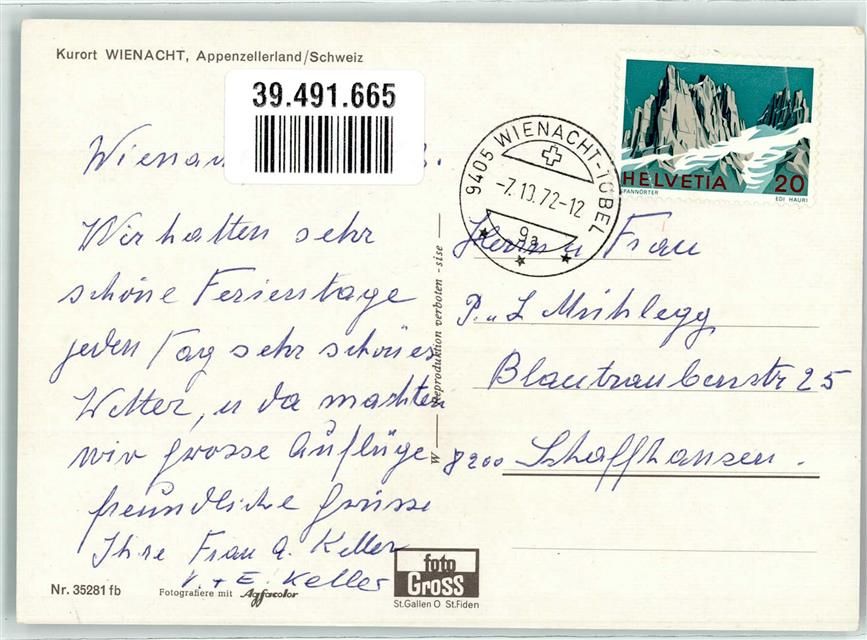 Kurort WIENACHT, Appenzellerland/Schweiz
39.491.665
9405 WIENACHT-TOBEL
-7.10.72-12
9a
HELVETIA 20
SPANNÖRTER
EDI HAURI
Wir hatten sehr
schöne Ferientage
jeden Tag sehr schönes
Wetter, u da machten
wir grosse Auflüge
freundliche Grüsse
Ihre Frau A. Keller
V. + E. Keller
Herrn u Frau
P. u L Mühlegg
Blautraubenstr 25
8200 Schaffhausen.
W — Reproduktion verboten - sise —
Nr. 35281 fb
Fotografiere mit Agfacolor
foto
GROSS
St.Gallen O St.Fiden